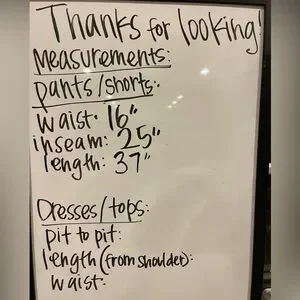 Thanks for looking!
measurements:
pants/shorts:
waist: 16"
inseam: 25"
length: 37"
Dresses/tops:
pit to pit:
length (from shoulder):
waist: